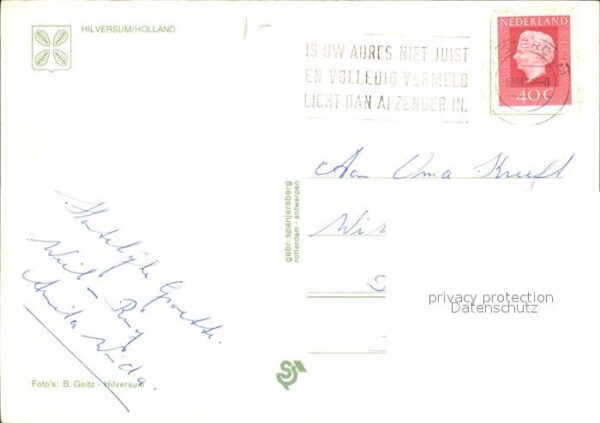 HILVERSUM/HOLLAND
IS UW ADRES NIET JUIST
EN VOLLEDIG VERMELD
LICHT DAN AFZENDER IN.
NEDERLAND
40 C
Aan Oma Kruft
Wi
gebr. spanjersberg
rotterdam - antwerpen
Hartelijke Groeten.
Anita
privacy protection
Datenschutz
Foto's: B. Geitz - Hilversum